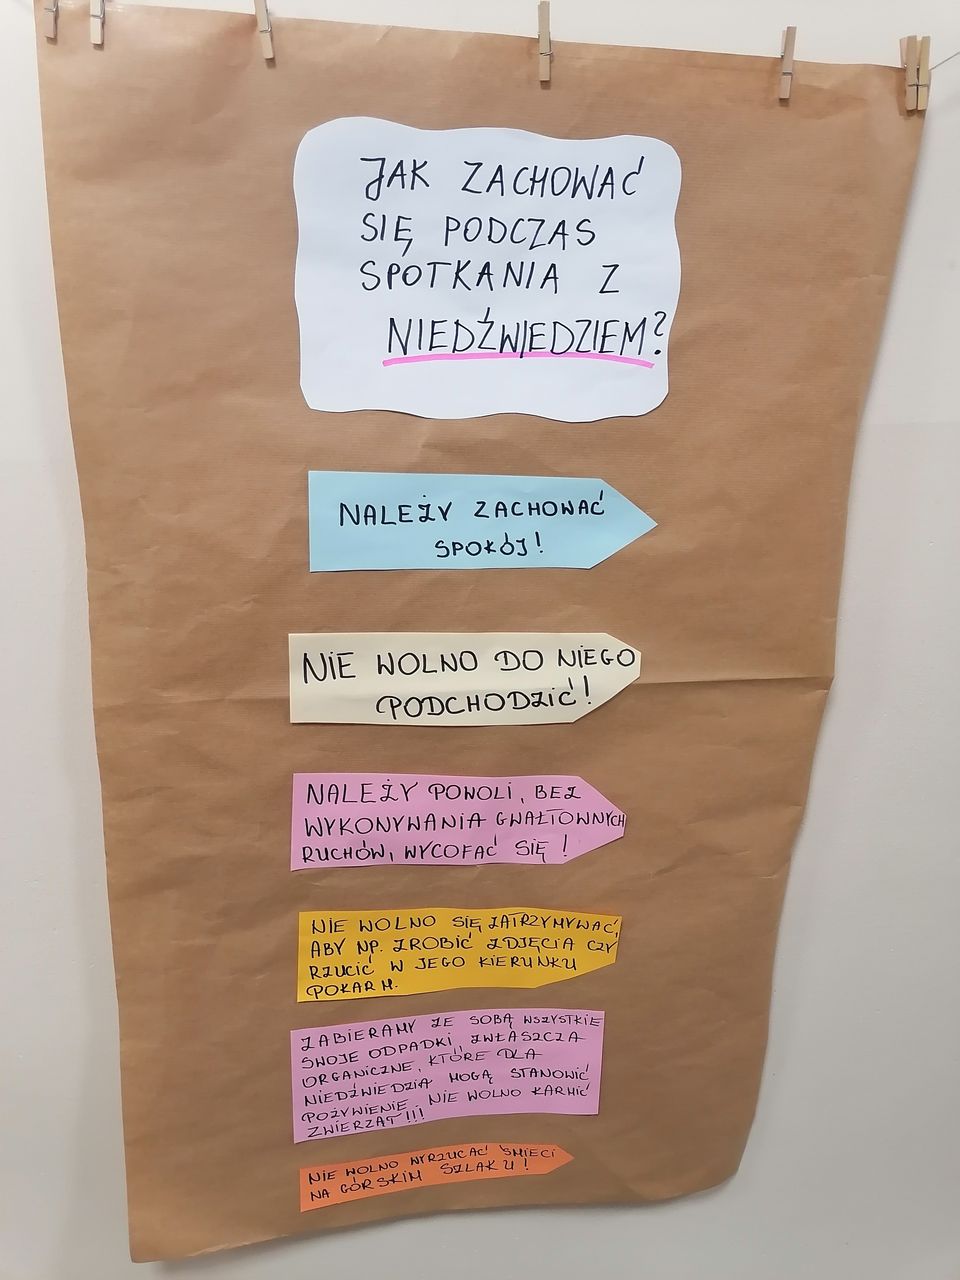 JAK ZACHOWAĆ
SIĘ PODCZAS
SPOTKANIA Z
NIEDŹWIEDZIEM?
NALEŻY ZACHOWAĆ
SPOKÓJ!
NIE WOLNO DO NIEGO
PODCHODZIĆ!
NALEŻY POWOLI, BEZ
WYKONYWANIA GWAŁTOWNYCH
RUCHÓW, WYCOFAĆ SIĘ!
NIE WOLNO SIĘ ZATRZYMYWAĆ,
ABY NP. ZROBIĆ ZDJĘCIA CZY
RZUCIĆ W JEGO KIERUNKU
POKARM.
ZABIERAMY ZE SOBĄ WSZYSTKIE
SWOJE ODPADKI, ZWŁASZCZA
ORGANICZNE, KTÓRE DLA
NIEDŹWIEDZIA MOGĄ STANOWIĆ
POŻYWIENIE. NIE WOLNO KARMIĆ
ZWIERZĄT!!!
NIE WOLNO WYRZUCAĆ ŚMIECI
NA GÓRSKIM SZLAKU!